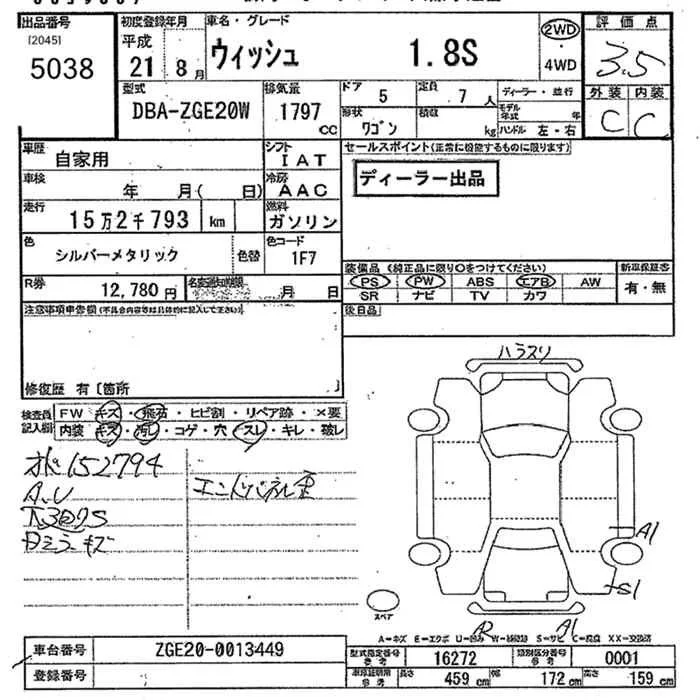 出品番号 初度登録年月 車名・グレード 2WD 評価点
[2045] 平成 ウィッシュ 1.8S 3.5
5038 21年 8月 4WD
型式 排気量 ドア 定員 ディーラー・並行 外装 内装
DBA-ZGE20W 1797 cc 5 7人 モデル年式 年 C C
形状 積載
ワゴン kg ハンドル 左・右
車歴 自家用 シフト IAT セールスポイント(正常に機能するものに限ります)
車検 年 月( 日) 冷房 AAC ディーラー出品
走行 15万2千793 km 燃料 ガソリン
色 シルバーメタリック 色替 色コード 1F7
装備品 (純正品に限り〇をつけてください) 新車保証書
R券 12,780円 名変通知期限 月 日 PS PW ABS エアB AW 有・無
SR ナビ TV カワ
注意事項申告欄(不具合内容等は具体的に記入して下さい) 後日品
修復歴 有〔箇所
検査員記入欄 FW キズ・飛石・ヒビ割・リペア跡・×要
内装 キズ・汚レ・コゲ・穴・スレ・キレ・破レ
152794
A.U
キズ
ハラスリ
A1
S1
スペア
A2 A1
A=キズ E=エクボ U=凹み W=補修跡 S=サビ C=腐食 XX=交換済
車台番号 ZGE20-0013449
登録番号
型式指定番号 参考 16272 類別区分番号 参考 0001
車検証明書 参考 長さ 459 cm 幅 172 cm 高さ 159 cm